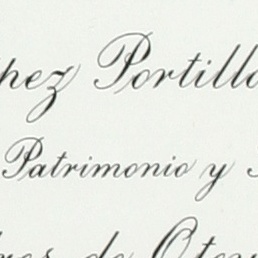 pez Portillo
Patrimonio y
de Otey